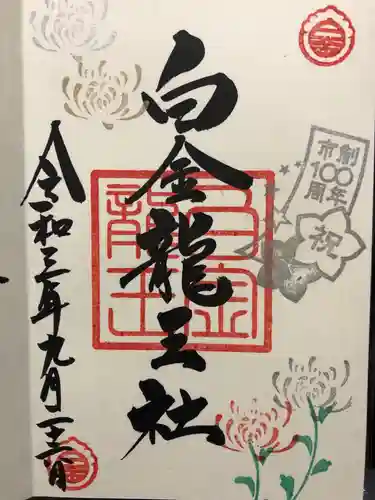 白金龍王社
令和三年九月二十三日
白金
龍王
市制
100
周年
祝